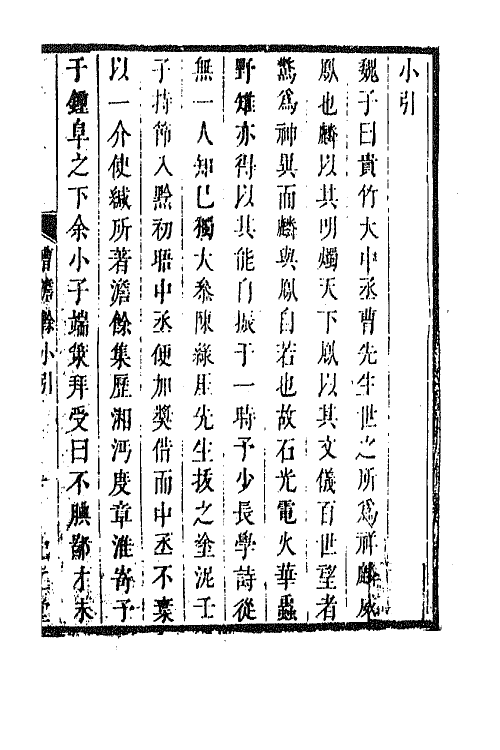 小引
魏子曰貴竹大中丞曹先生世之所爲祥麟威
鳳也麟以其明燭天下鳳以其文儀百世望者
驚爲神異而麟與鳳自若也故石光電火華蟲
野雉亦得以其能自振于一時予少長學詩從
無一人知己獨大叅陳綠厓先生拔之塗泥壬
子持節入黔初晤中丞便加奬借而中丞不棄
以一介使緘所著澹餘集歷湘沔度章淮寄予
于鍾阜之下余小子端肅拜受曰不腆鄙才未
曹澹餘小引